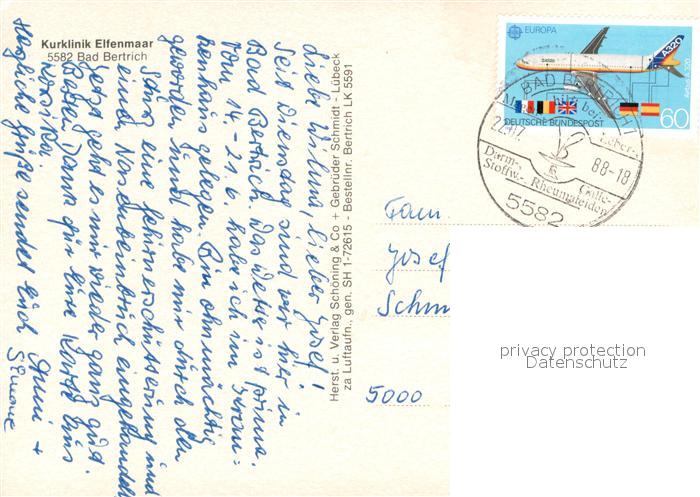 Kurklinik Elfenmaar
5582 Bad Bertrich
Liebe Wilma, lieber Josef!
Seit Dienstag sind wir hier in
Bad Bertrich. Das Wetter ist prima.
Vom 14.-21.6. habe ich im Kran-
kenhaus gelegen. Bin ohnmächtig
geworden und habe mir durch den
Sturz eine Gehirnerschütterung und
einen Nasenbeinbruch eingehandelt.
Jetzt geht es mir wieder ganz gut.
Besten Dank für eure Karte aus
Herzliche Grüße sendet euch Anni +
Simone
Herst. u. Verlag Schöning & Co + Gebrüder Schmidt - Lübeck
za Luftaufn., gen. SH 1-72615 - Bestellnr. Bertrich LK 5591
EUROPA
A320
60
DEUTSCHE BUNDESPOST
BAD BERTRICH
hilft bei
Leber-
22.-7.
88-18
Darm-
Stoffw.-
Galle-
Rheumaleiden
5582
Fam.
Josef
Schm
5000
privacy protection
Datenschutz